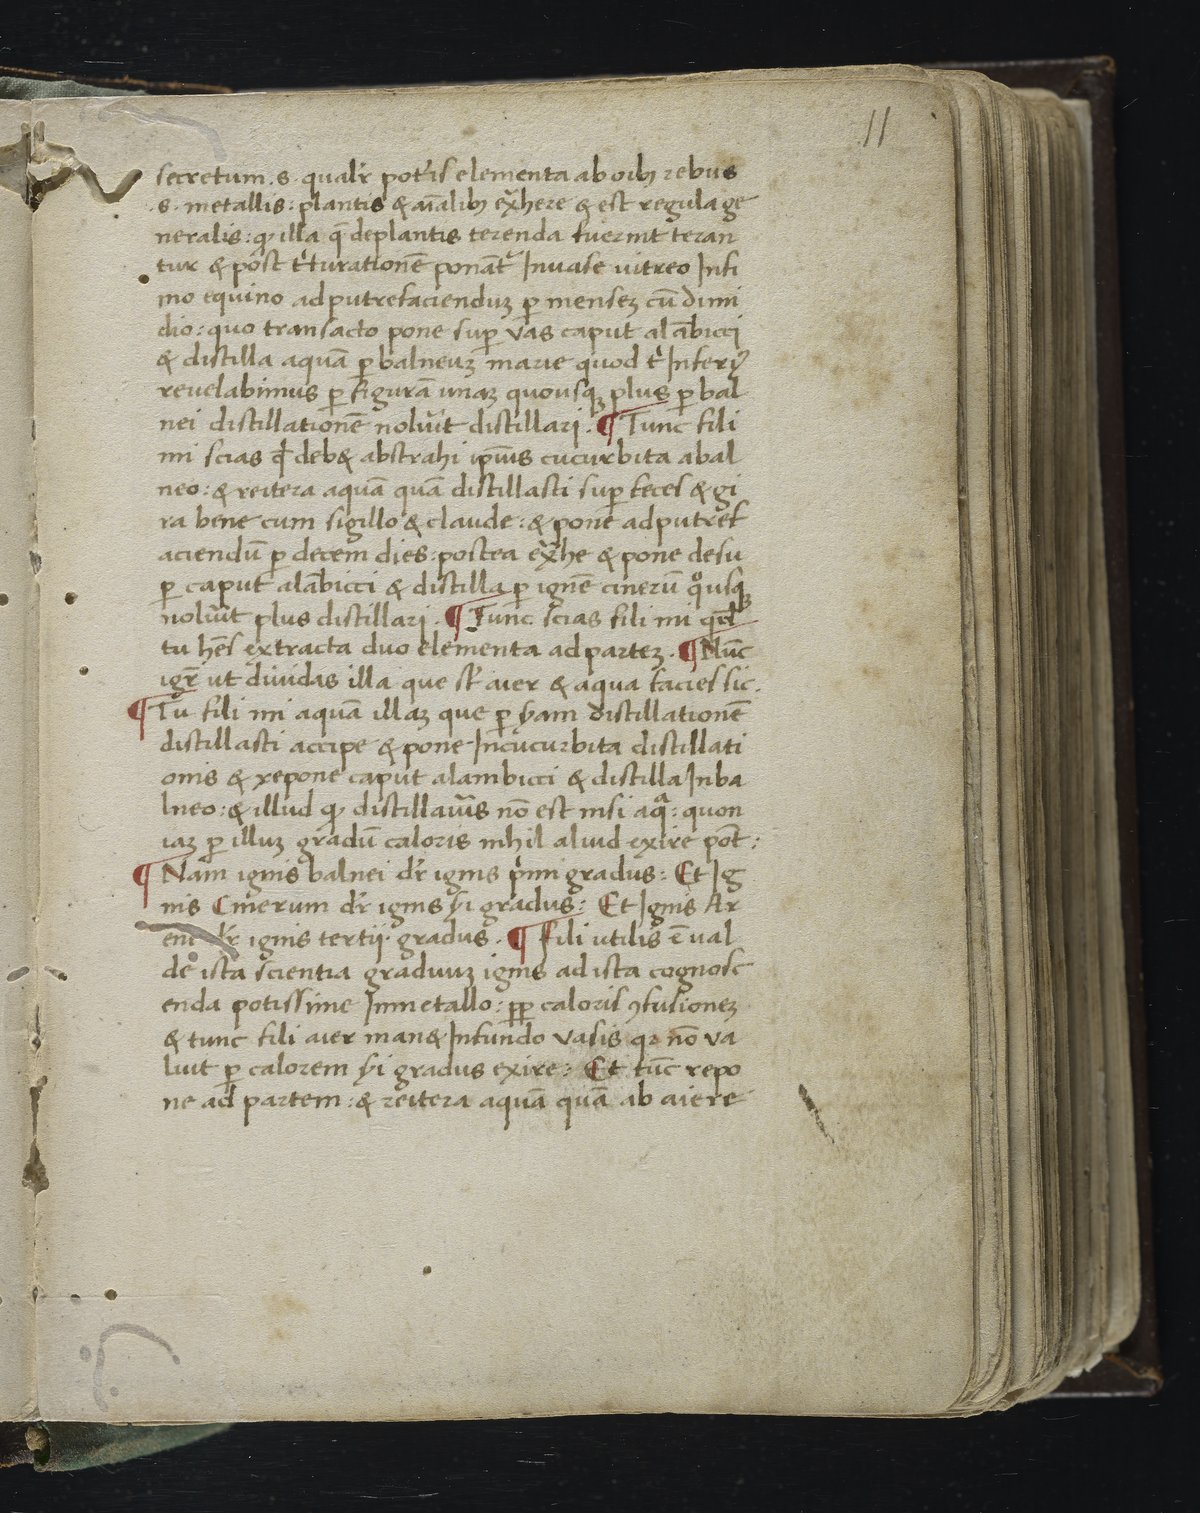 11
secretum .s. qualr̃ pot̃is elementa ab oĩbꝫ rebus
.s. metallis: plantis & aĩalibꝫ ex̃here & est regula ge
neralis: qͥ illa q̃ de plantis terenda fuerint teran
tur & post tͥturationẽ ponãt̃ In vase vitreo In fi
mo equino ad putrefaciendũ ꝑ menseꝫ cũ dimi
dio: quo transacto pone suꝑ vas caput alãbicci
& distilla aquã ꝑ balneuꝫ marie quod tͥ Inferiꝰ
revelabimus ꝑ figurã unaꝫ quousqꝫ plus ꝑ bal
nei distillationẽ nolũit distillari. ¶ Tunc fili
mi scias qđ deb& abstrahi ip̃ius cucurbita a bal
neo: & reitera aquã quã distillasti suꝑ feces & gi
ra bene cum sigillo & claude: & pone ad putref
aciendũ ꝑ decem dies: postea ex̃he & pone desu
ꝑ caput alãbicci & distilla ꝑ ignẽ cinerũ qͦusqꝫ
nolũit plus distillari. ¶ Tunc scias fili mi qđ
tu hẽs extracta duo elementa ad parteꝫ. ¶ Nũc
igr̃ ut dividas illa que st̃ aier & aqua facies sic.
¶ Tu fili mi aquã illaꝫ que ꝑ ỹam distillationẽ
distillasti accipe & pone In cucurbita distillati
onis & repone caput alambicci & distilla In ba
lneo: & illud qͥ distillavĩs nõ est nisi aqͣ: quon
iaꝫ ꝑ illuꝫ gradũ caloris nihil aliud exire põt:
¶ Nam ignis balnei dr̃ ignis pͥmi gradus: Et Ig
nis Cinerum dr̃ ignis ỹi gradus: Et Ignis Ar
eni dr̃ ignis tertii gradus. ¶ Fili utilis ẽ val
de ista scientia graduuꝫ ignis ad ista cognosc
enda potissime In metallo: ꝓꝑ caloris ꝯfusioneꝫ
& tunc fili aier man& In fundo vasis qꝛ nõ va
luit ꝑ calorem ỹi gradus exire: Et tũc repo
ne ad partem: & reitera aquã quã ab aiere